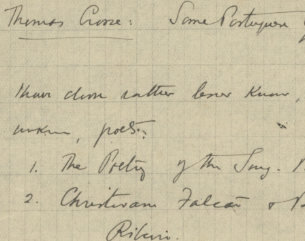 Thomas Crosse: Some Portuguese
than done rather lesser known,
unknown, poets.
1. The Poetry of the Song.
2. Christovam Falcão &
Ribeiro.